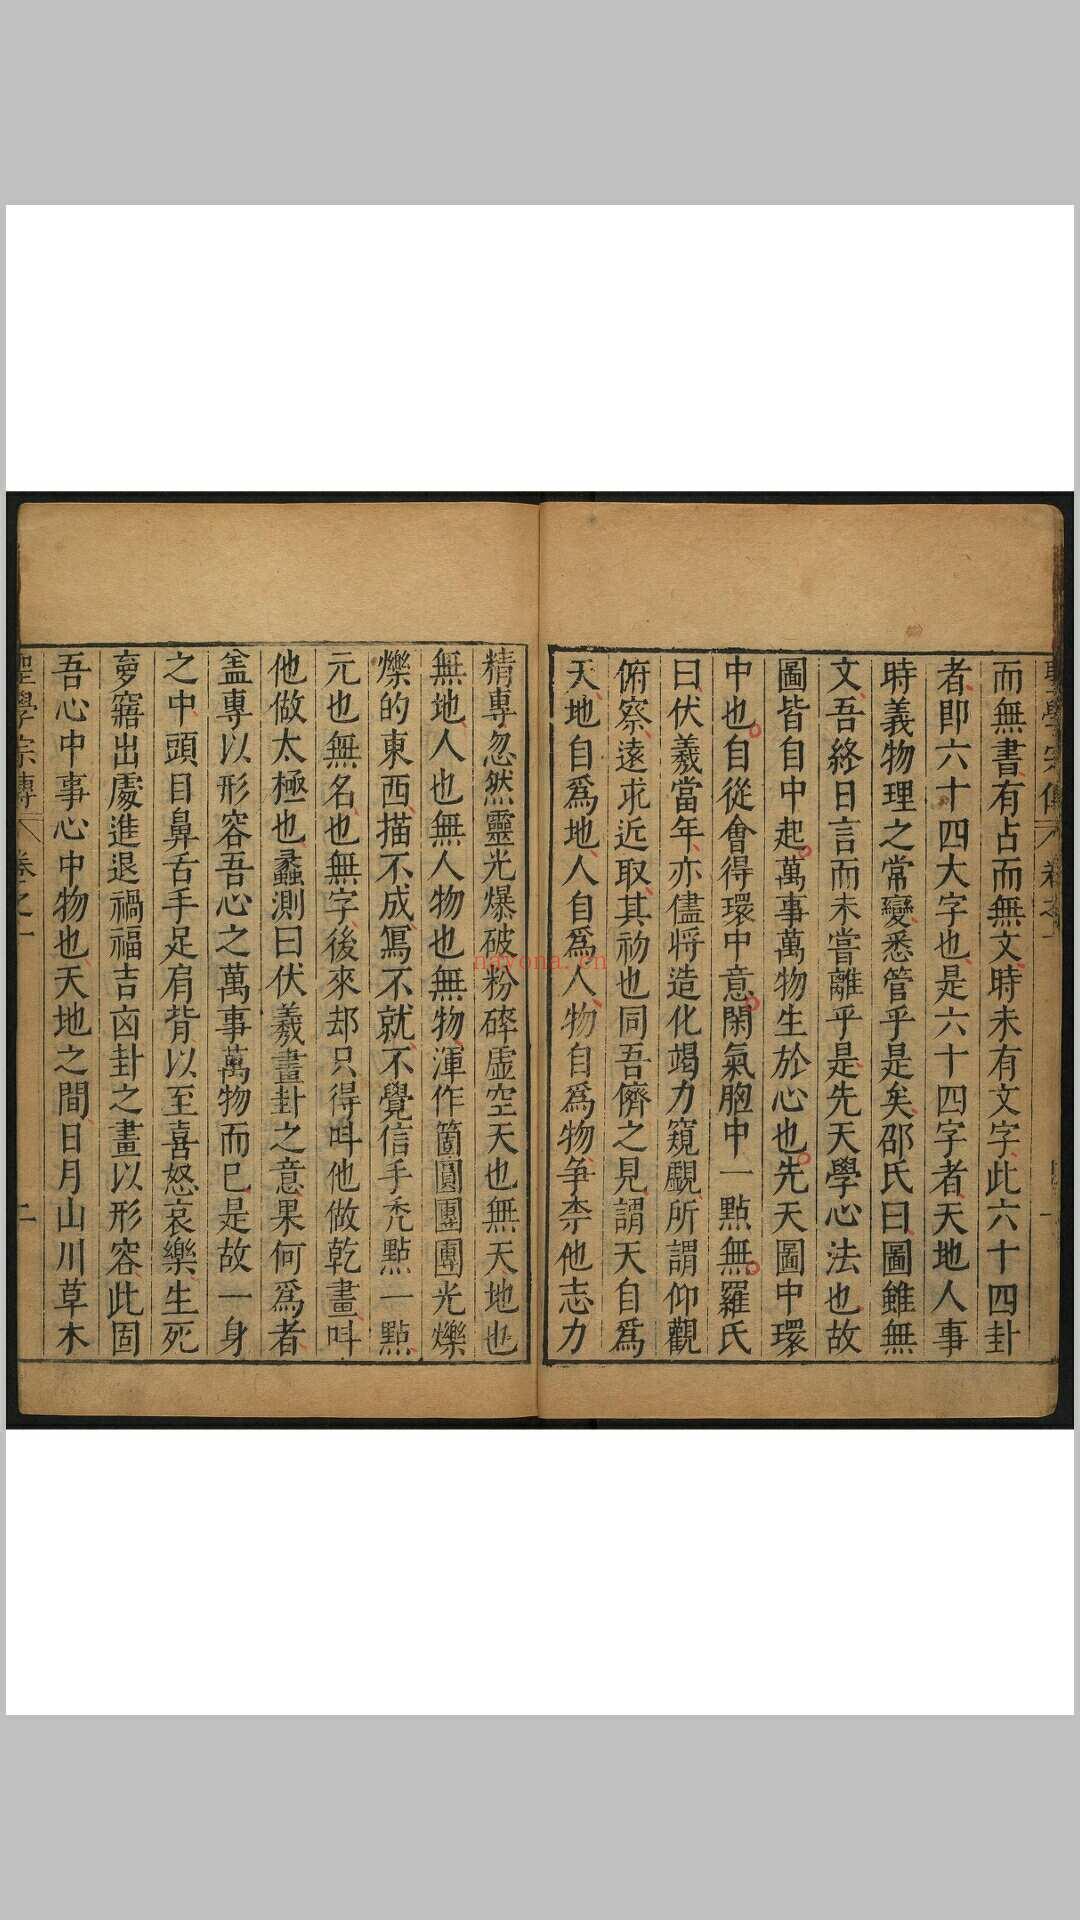 而無書有占而無文時未有文字此六十四卦
者即六十四大字也是六十四字者天地人事
時義物理之常變悉管乎是矣邵氏曰圖雖無
文吾終日言而未嘗離乎是先天學心法也故
圖皆自中起萬事萬物生於心也先天圖中環
中也自從會得環中意閑氣胷中一點無羅氏
曰伏羲當年亦儘將造化竭力窺覷所謂仰觀
俯察遠求近取其初也同吾儕之見謂天自爲
天地自爲地人自爲人物自爲物爭柰他志力
精專忽然靈光爆破粉碎虛空天也無天地也
無地人也無人物也無物渾作箇圓團團光爍
爍的東西描不成寫不就不覺信手禿點一點
元也無名也無字後來却只得呌他做乾畫呌
他做太極也蠡測曰伏羲畫卦之意果何爲者
盖專以形容吾心之萬事萬物而已是故一身
之中頭目鼻舌手足肩背以至喜怒哀樂生死
夢寤出處進退禍福吉凶卦之畫以形容此固
吾心中事心中物也天地之間日月山川草木
聖學宗傳 卷之一 二
nayona.cn